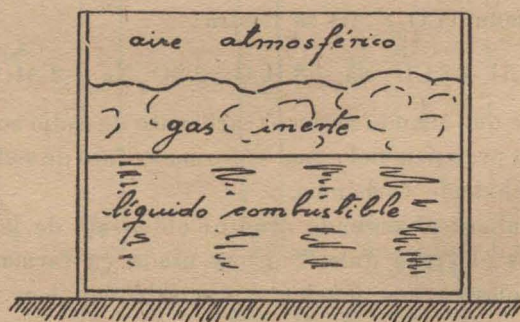 aire atmosférico
gas inerte
líquido combustible